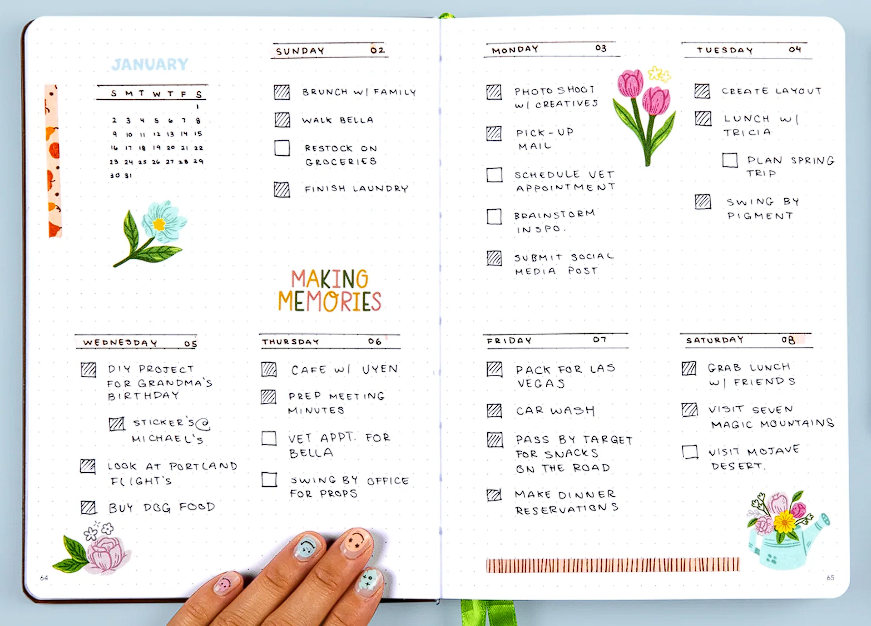 JANUARY
S M T W T F S
1
2 3 4 5 6 7 8
9 10 11 12 13 14 15
16 17 18 19 20 21 22
23 24 25 26 27 28 29
30 31
SUNDAY 02
BRUNCH W/ FAMILY
WALK BELLA
RESTOCK ON
GROCERIES
FINISH LAUNDRY
MAKING
MEMORIES
WEDNESDAY 05
DIY PROJECT
FOR GRANDMA'S
BIRTHDAY
STICKER'S@
MICHAEL'S
LOOK AT PORTLAND
FLIGHT'S
BUY DOG FOOD
THURSDAY 06
CAFE W/ UYEN
PREP MEETING
MINUTES
VET APPT. FOR
BELLA
SWING BY OFFICE
FOR PROPS
64
MONDAY 03
PHOTO SHOOT
W/ CREATIVES
PICK-UP
MAIL
SCHEDULE VET
APPOINTMENT
BRAINSTORM
INSPO.
SUBMIT SOCIAL
MEDIA POST
TUESDAY 04
CREATE LAYOUT
LUNCH W/
TRICIA
PLAN SPRING
TRIP
SWING BY
PIGMENT
FRIDAY 07
PACK FOR LAS
VEGAS
CAR WASH
PASS BY TARGET
FOR SNACKS
ON THE ROAD
MAKE DINNER
RESERVATIONS
SATURDAY 08
GRAB LUNCH
W/ FRIENDS
VISIT SEVEN
MAGIC MOUNTAINS
VISIT MOJAVE
DESERT.
65